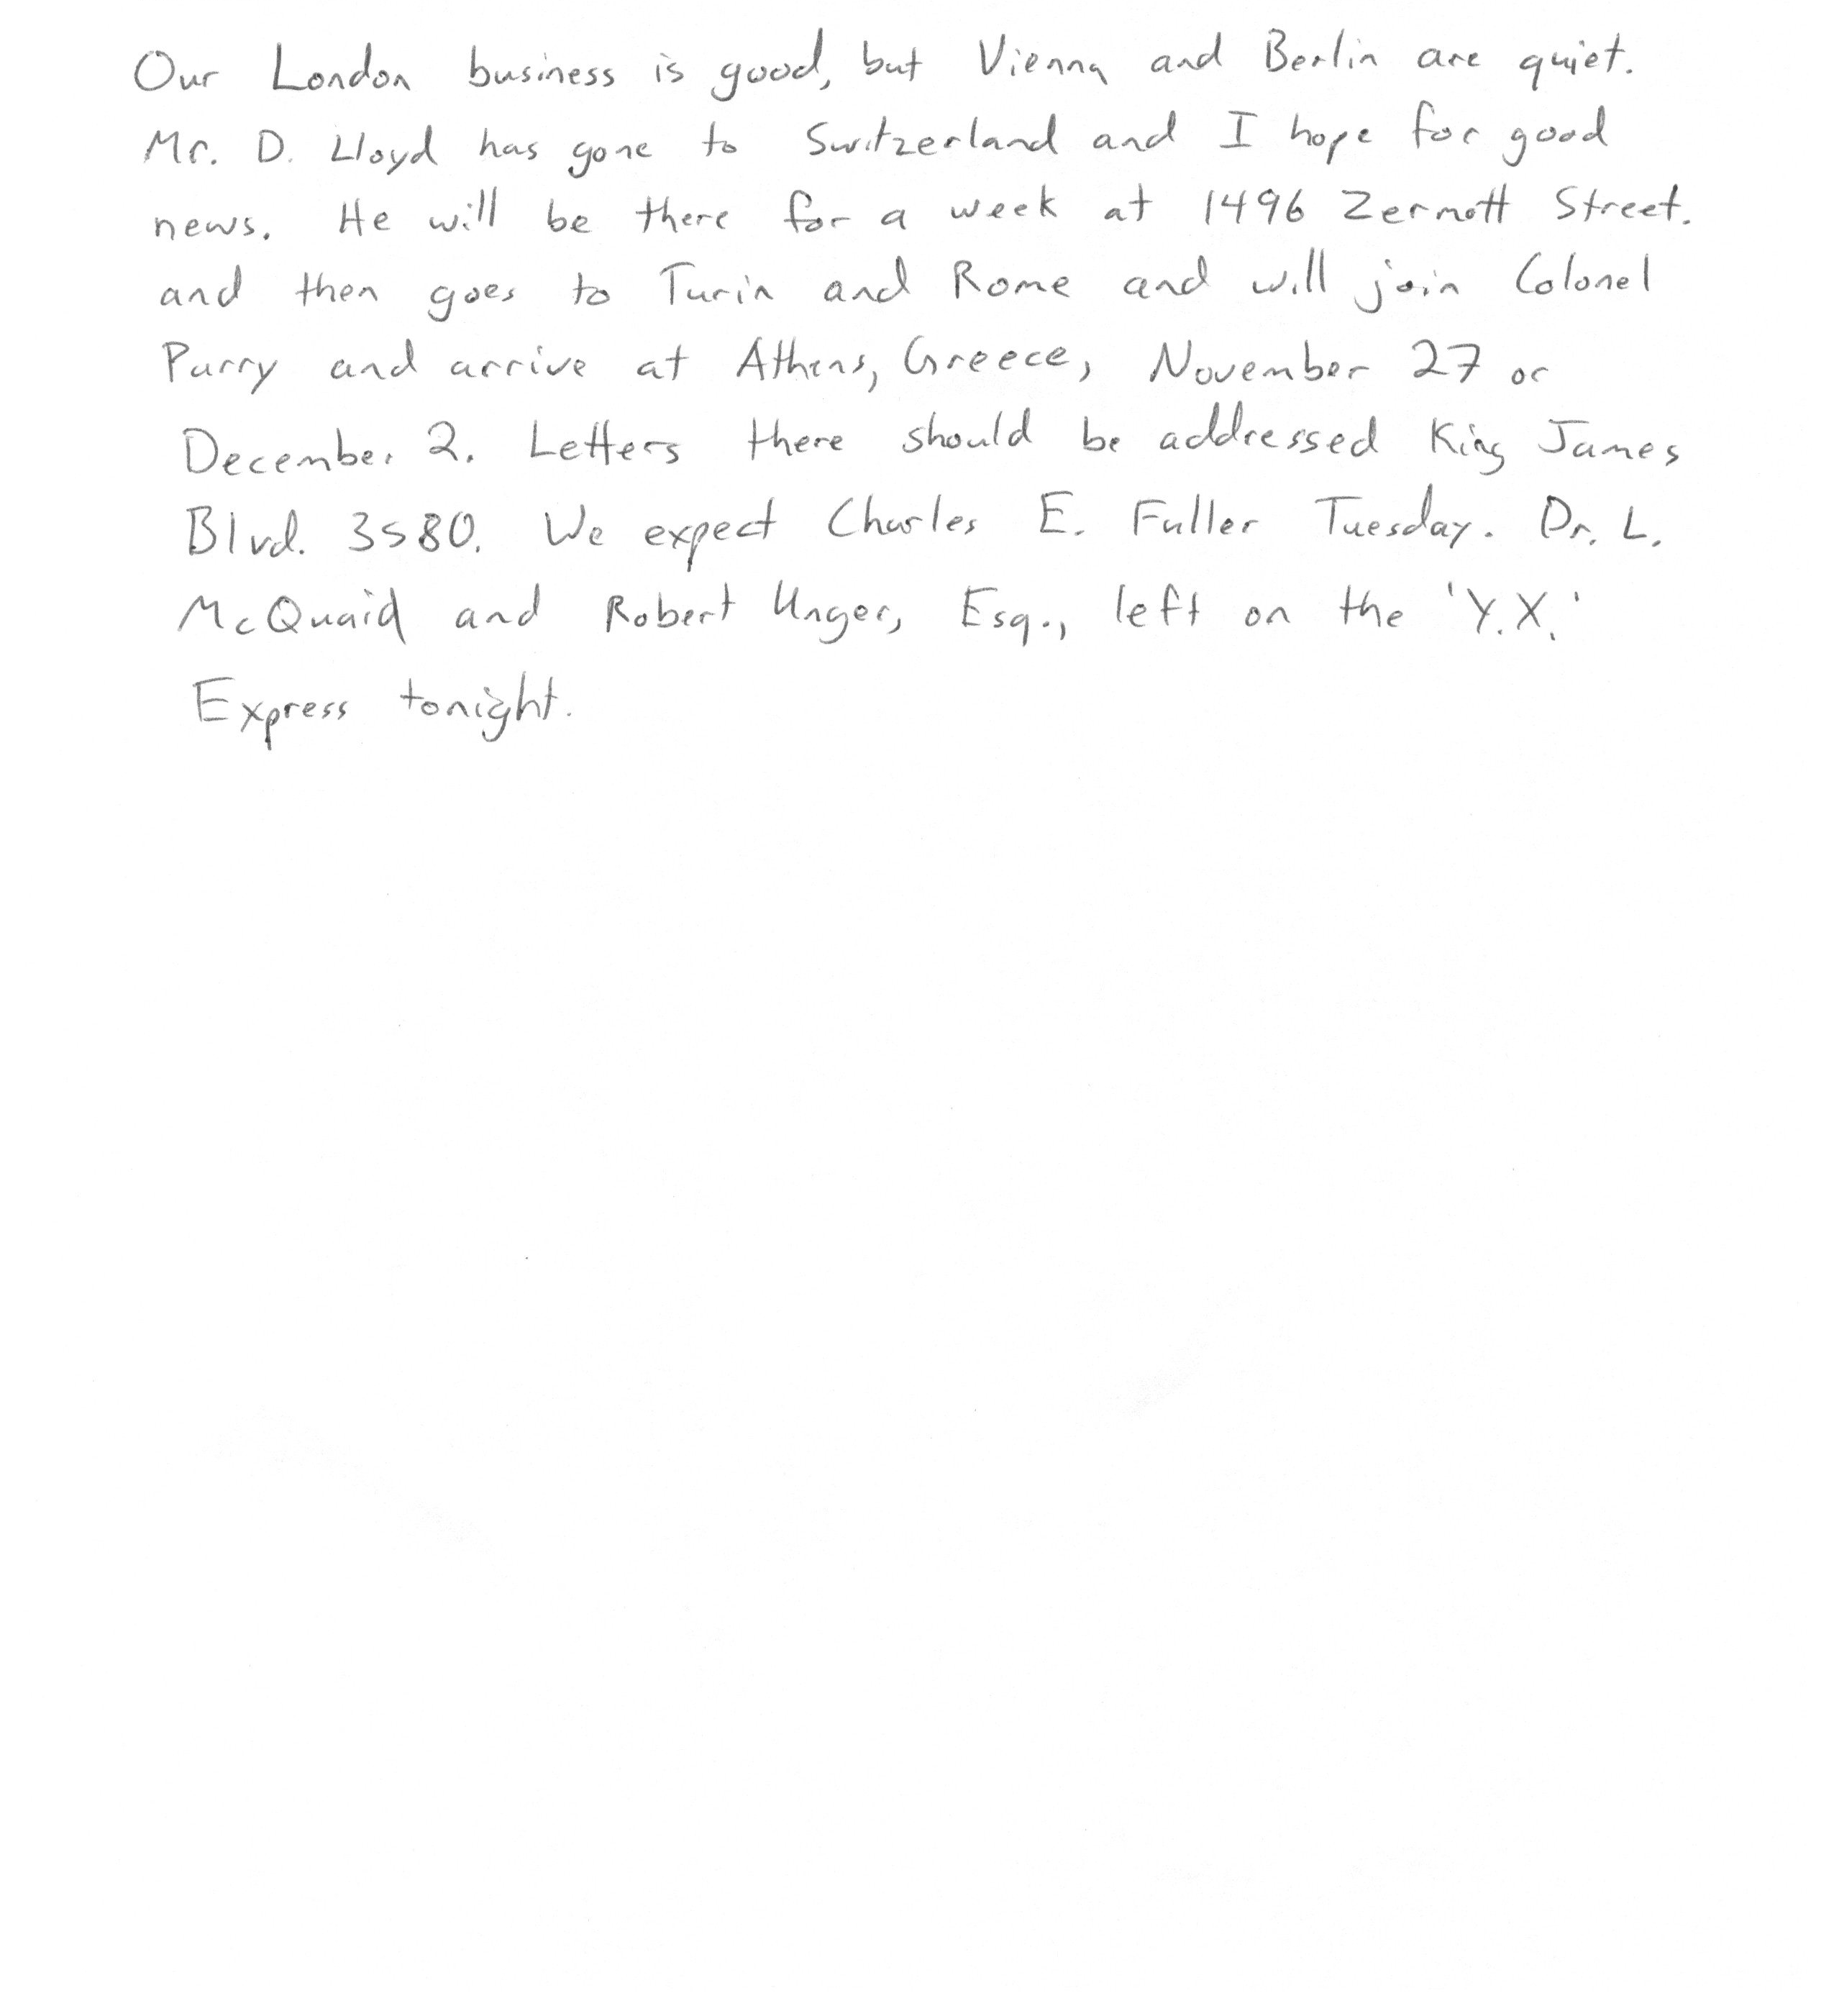 Our London business is good, but Vienna and Berlin are quiet.
Mr. D. Lloyd has gone to Switzerland and I hope for good
news. He will be there for a week at 1496 Zermott Street.
and then goes to Turin and Rome and will join Colonel
Parry and arrive at Athens, Greece, November 27 or
December 2. Letters there should be addressed King James
Blvd. 3580. We expect Charles E. Fuller Tuesday. Dr. L.
McQuaid and Robert Unger, Esq., left on the 'Y.X.'
Express tonight.